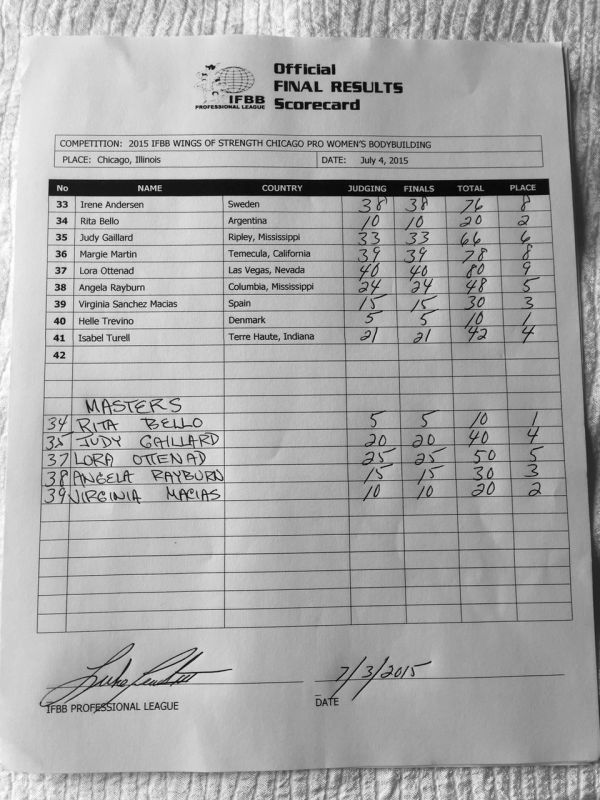 IFBB
PROFESSIONAL LEAGUE
Official
FINAL RESULTS
Scorecard
COMPETITION: 2015 IFBB WINGS OF STRENGTH CHICAGO PRO WOMEN'S BODYBUILDING
PLACE: Chicago, Illinois DATE: July 4, 2015
No NAME COUNTRY JUDGING FINALS TOTAL PLACE
33 Irene Andersen Sweden 38 38 76 8
34 Rita Bello Argentina 10 10 20 2
35 Judy Gaillard Ripley, Mississippi 33 33 66 6
36 Margie Martin Temecula, California 39 39 78 8
37 Lora Ottenad Las Vegas, Nevada 40 40 80 9
38 Angela Rayburn Columbia, Mississippi 24 24 48 5
39 Virginia Sanchez Macias Spain 15 15 30 3
40 Helle Trevino Denmark 5 5 10 1
41 Isabel Turell Terre Haute, Indiana 21 21 42 4
42
MASTERS
34 RITA BELLO 5 5 10 1
35 JUDY GAILLARD 20 20 40 4
37 LORA OTTENAD 25 25 50 5
38 ANGELA RAYBURN 15 15 30 3
39 VIRGINIA MACIAS 10 10 20 2
7/3/2015
IFBB PROFESSIONAL LEAGUE DATE